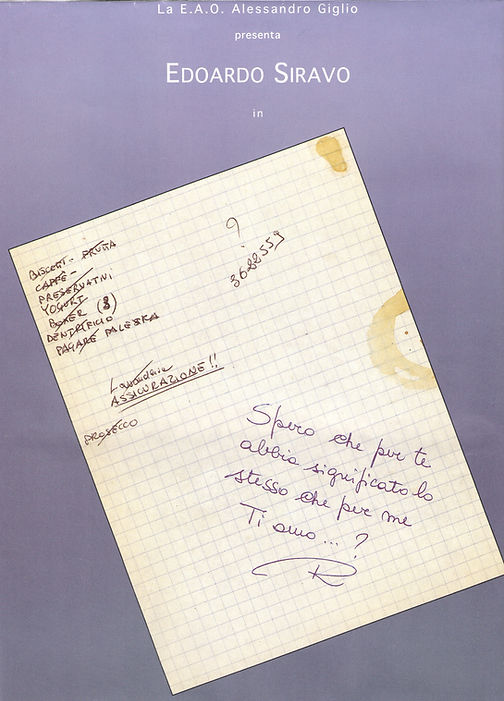 La E.A.O. Alessandro Giglio
presenta
EDOARDO SIRAVO
in
?
3622559
BISCOTTI - FRUTTA
CAFFÈ -
PRESERVATIVI
YOGURT
BOXER (3)
DENTIFRICIO
PAGARE PALESTRA
Lavanderia
ASSICURAZIONE!!
PROSECCO
Spero che per te
abbia significato lo
stesso che per me
Ti amo... ?
R